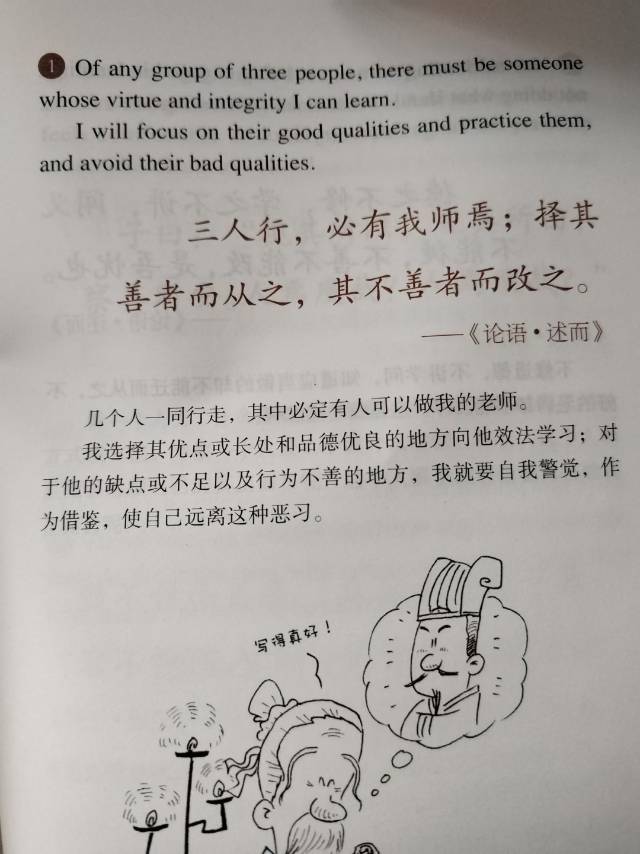 1 Of any group of three people, there must be someone
whose virtue and integrity I can learn.
I will focus on their good qualities and practice them,
and avoid their bad qualities.
三人行，必有我师焉；择其
善者而从之，其不善者而改之。
——《论语·述而》
几个人一同行走，其中必定有人可以做我的老师。
我选择其优点或长处和品德优良的地方向他效法学习；对
于他的缺点或不足以及行为不善的地方，我就要自我警觉，作
为借鉴，使自己远离这种恶习。
写得真好！